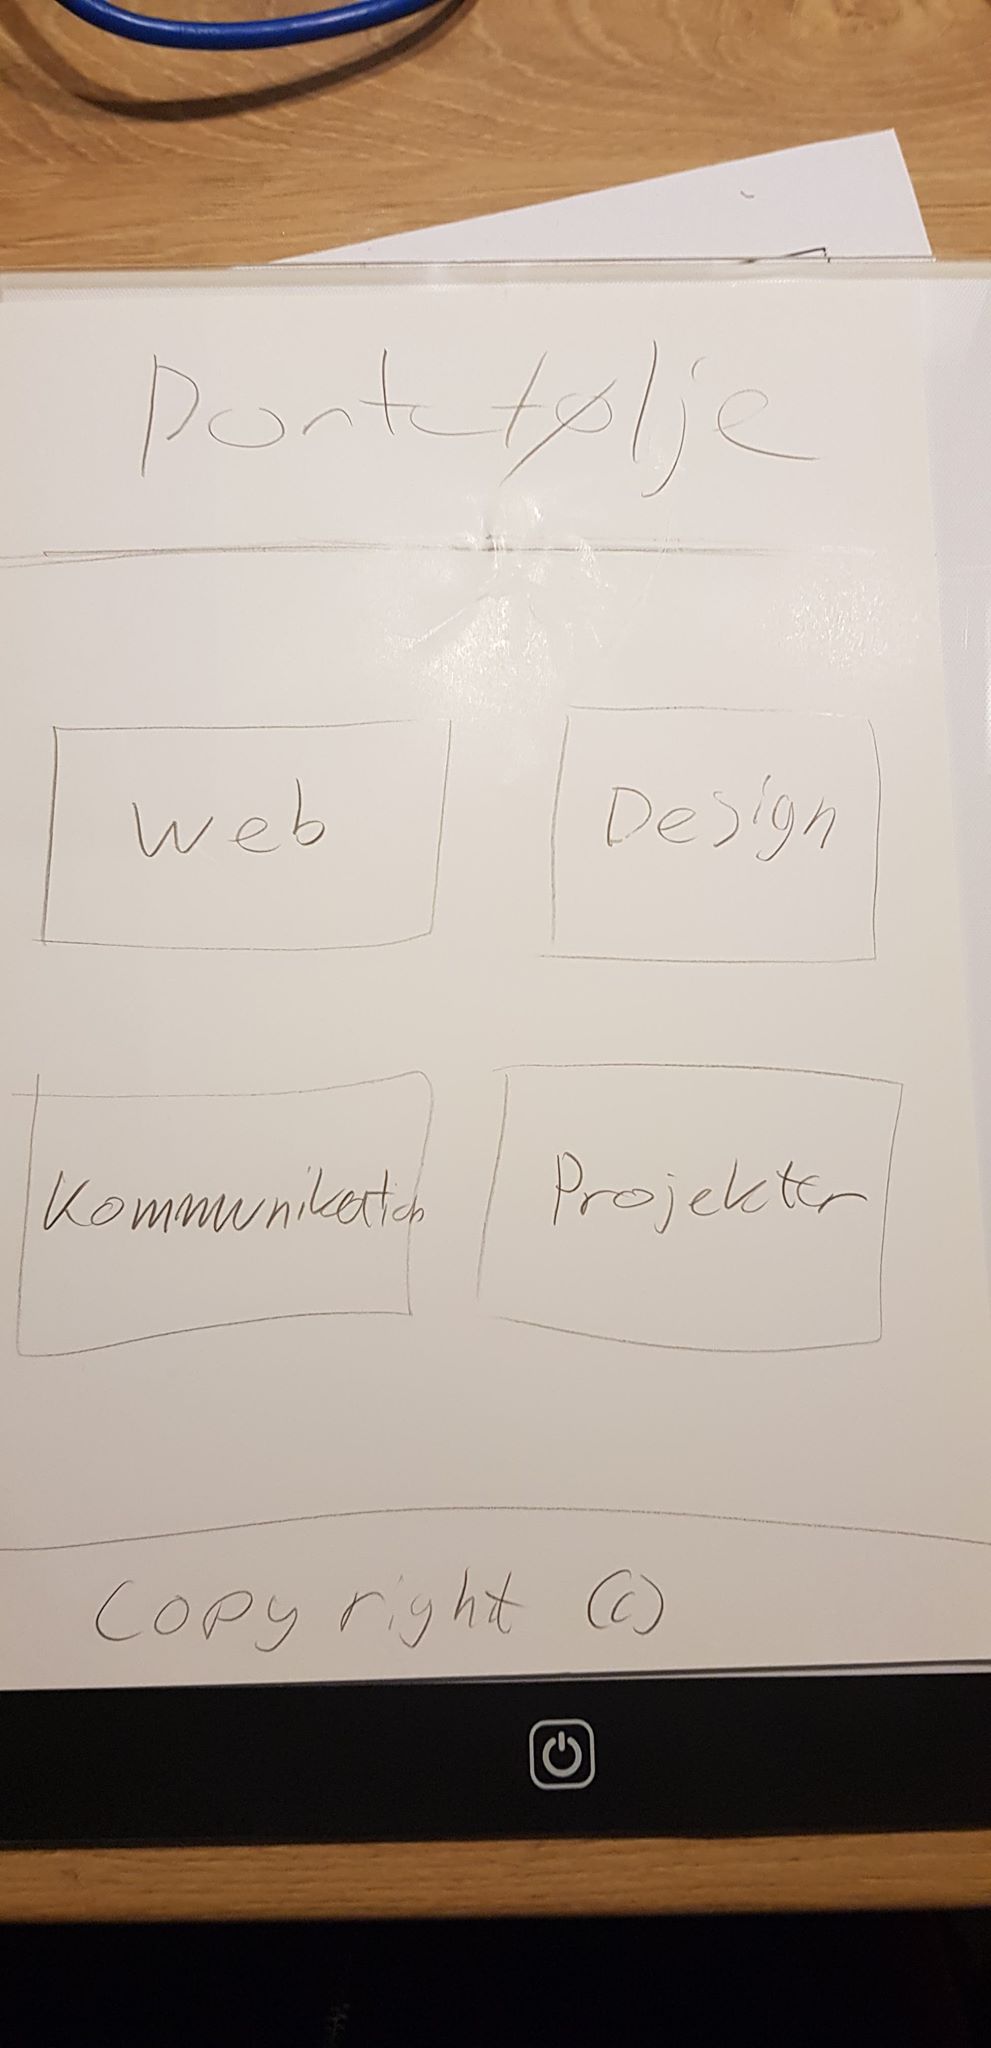 Portefølje
Web
Design
Kommunikation
Projekter
Copyright (c)